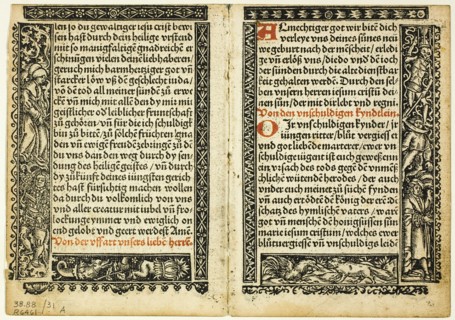 len so du gewaltiger iesu crist bewi
sen hast durch dein heilige vrstend
mit so manigfaltige gnadreiche er
schinūgen viden deinē liebhaberen/
gerüch mich barmhertziger got vn̄
starcker löw vß dē geschlecht iuda/
vō dē tod all meiner sünd zū erwe
ckē vn̄ mich mit allē den dy mir mit
geistlicher oð leiblicher früntschaft
zū gehören/vn̄ für die ich schuldigk
bin zū bittē/zū solchē früchten/gna
den vn̄ ewigē freudē zebringē zū dē
du vns dan den weg durch dy sen
dung des heiligē geistes/vn̄ durch
dy zūkunft deins iungsten gerich
tes hast fürsichtig machen wollen
da durch du volkomlich von vns
vnd aller creatur mit iubel vn̄ fro
lockung ymmer vnd ewiglich on
end gelobt vnd geert werdest Amē.
Von der vffart vnsers liebē herrē.
38.88 /31 A
R6461
ALmechtiger got wir bitē dich
verleye vns deines sūnes nu
we geburt nach der mēscheit/erledi
ge vn̄ erlöß vns/die do vnd dē ioch
der sünden durch die alte dinstbar
keit gehalten werdē. Durch den sel
ben vnsern herren iesum cristū dei
nen sūn/der mit dir lebt vnd regni.
Von den vnschuldigen kyndlein.
O Jr vnschuldigen kynder/ir
iungen ritter/blūt vergiesser
vnd got liebē de marterer/ewer vn
schuldige iugent ist euch gewesenn
ein vrsach des tods gegē dē vnmē
schlichē wütendē herodes/der auch
vnder euch meinet zū sūchē fynden
vn̄ auch ertödtē dē kōnig der erē dē
schatz des hymlischē vaters/war
got vn̄ mensch dē honigfüssen sūn
marie iesum cristum/welches ewer
blūtuergiessē vn̄ vnschuldigs leidē